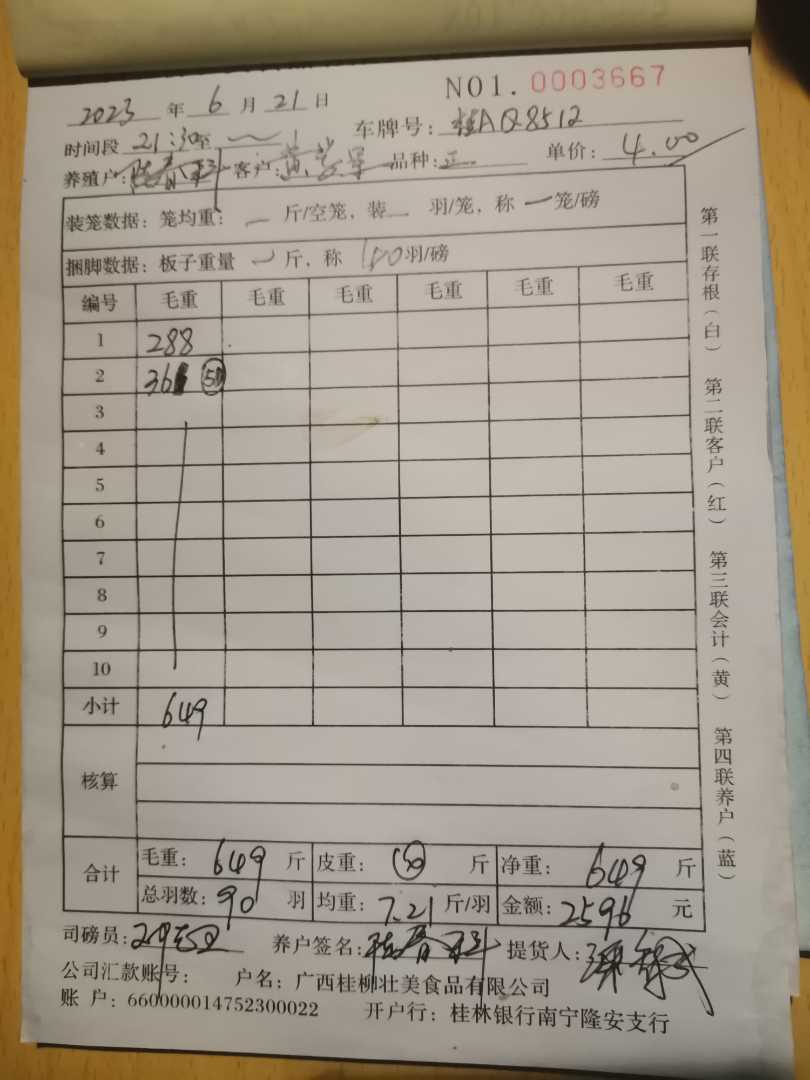 NO1. 0003667
2023 年 6 月 21 日
时间段 21:30 至 ~ 车牌号: 桂AQ8512
养殖户: 客户: 黄 品种: 正 单价: 4.00
装笼数据: 笼均重: — 斤/空笼, 装 — 羽/笼, 称 一 笼/磅
捆脚数据: 板子重量 ~ 斤, 称 羽/磅
编号 毛重 毛重 毛重 毛重 毛重 毛重
1 288
2 361 50
3
4
5
6
7
8
9
10
小计 649
核算
合计 毛重: 649 斤 皮重: 斤 净重: 649 斤
总羽数: 90 羽 均重: 7.21 斤/羽 金额: 2596 元
司磅员: 养户签名: 提货人:
公司汇款账号: 户名: 广西桂柳壮美食品有限公司
账 户: 660000014752300022 开户行: 桂林银行南宁隆安支行
第一联存根(白) 第二联客户(红) 第三联会计(黄) 第四联养户(蓝)